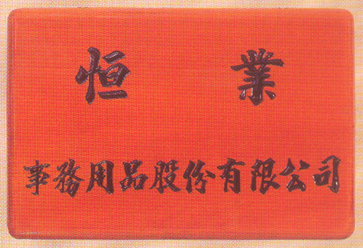 恒業
事務用品股份有限公司